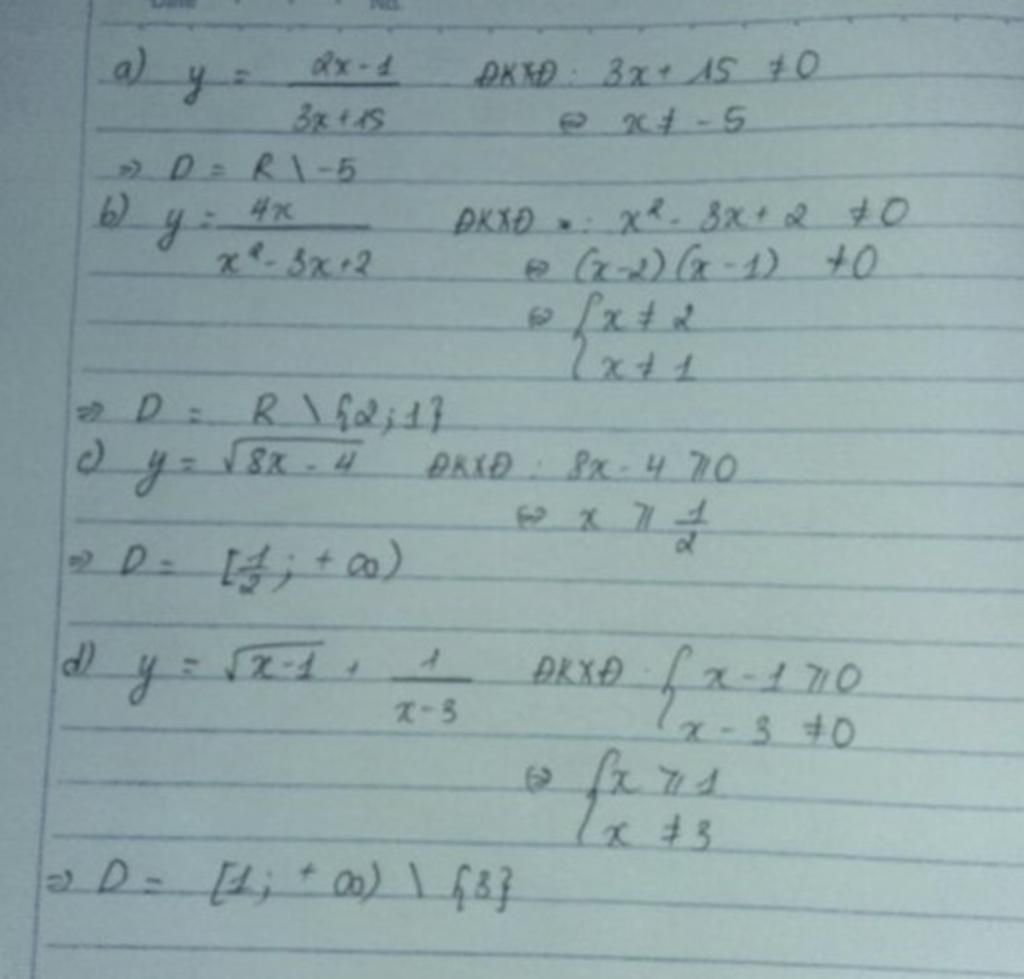 Date No.
a) y = (2x-1)/(3x+15) ĐKXĐ: 3x + 15 ≠0
⇔ x ≠ -5
=> D = R \ -5
b) y = 4x/(x²-3x+2) ĐKXĐ : x² - 3x + 2 ≠0
⇔ (x-2)(x-1) ≠0
⇔ { x ≠ 2
x ≠ 1
=> D = R \ {2;1}
c) y = √(8x - 4) ĐKXĐ : 8x - 4 ⩾0
⇔ x ⩾ 1/2
=> D = [1/2; +∞)
d) y = √(x-1) + 1/(x-3) ĐKXĐ: { x - 1 ⩾0
x - 3 ≠0
⇔ { x ⩾ 1
x ≠ 3
=> D = [1; +∞) \ {3}